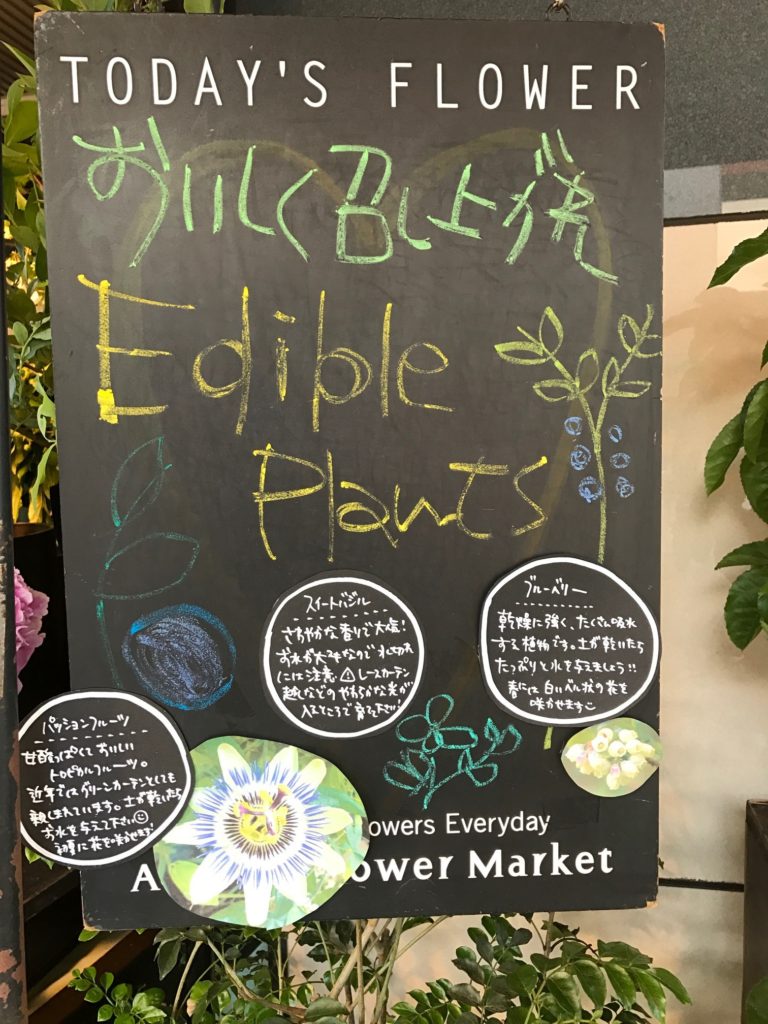 TODAY'S FLOWER
おいしく召し上が
Edible
Plants
スイートバジル
さわやかな香りで大人気!
お水が大好なので水切れ
には注意 レースカーテン
越しなどのやわらかな光が
入るところで育て下さい!
ブルーベリー
乾燥に強く、たくさん吸水
する植物です。土が乾いたら
たっぷりと水を与えましょう!!
春には白いベル状の花を
咲かせます
パッションフルーツ
甘酸っぱくておいしい
トロピカルフルーツ。
近年ではグリーンカーテンとしても
親しまれています。土が乾いたら
お水を与えて下さい
に花を咲かせます
owers Everyday
A ower Market